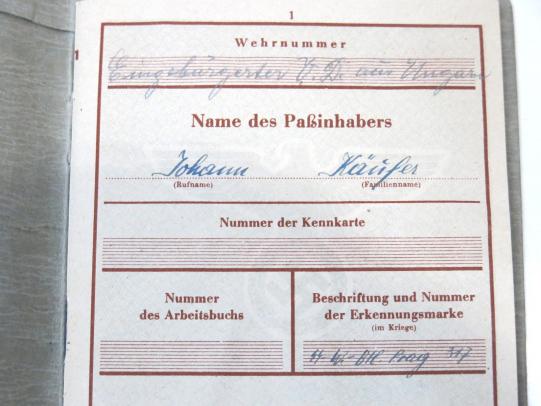 1
Wehrnummer
1
Eingebürgerter V. D. aus Ungarn
Name des Paßinhabers
Johann Käufer
(Rufname) (Familienname)
Nummer der Kennkarte
Nummer
des Arbeitsbuchs
Beschriftung und Nummer
der Erkennungsmarke
(im Kriege)
Prag 317